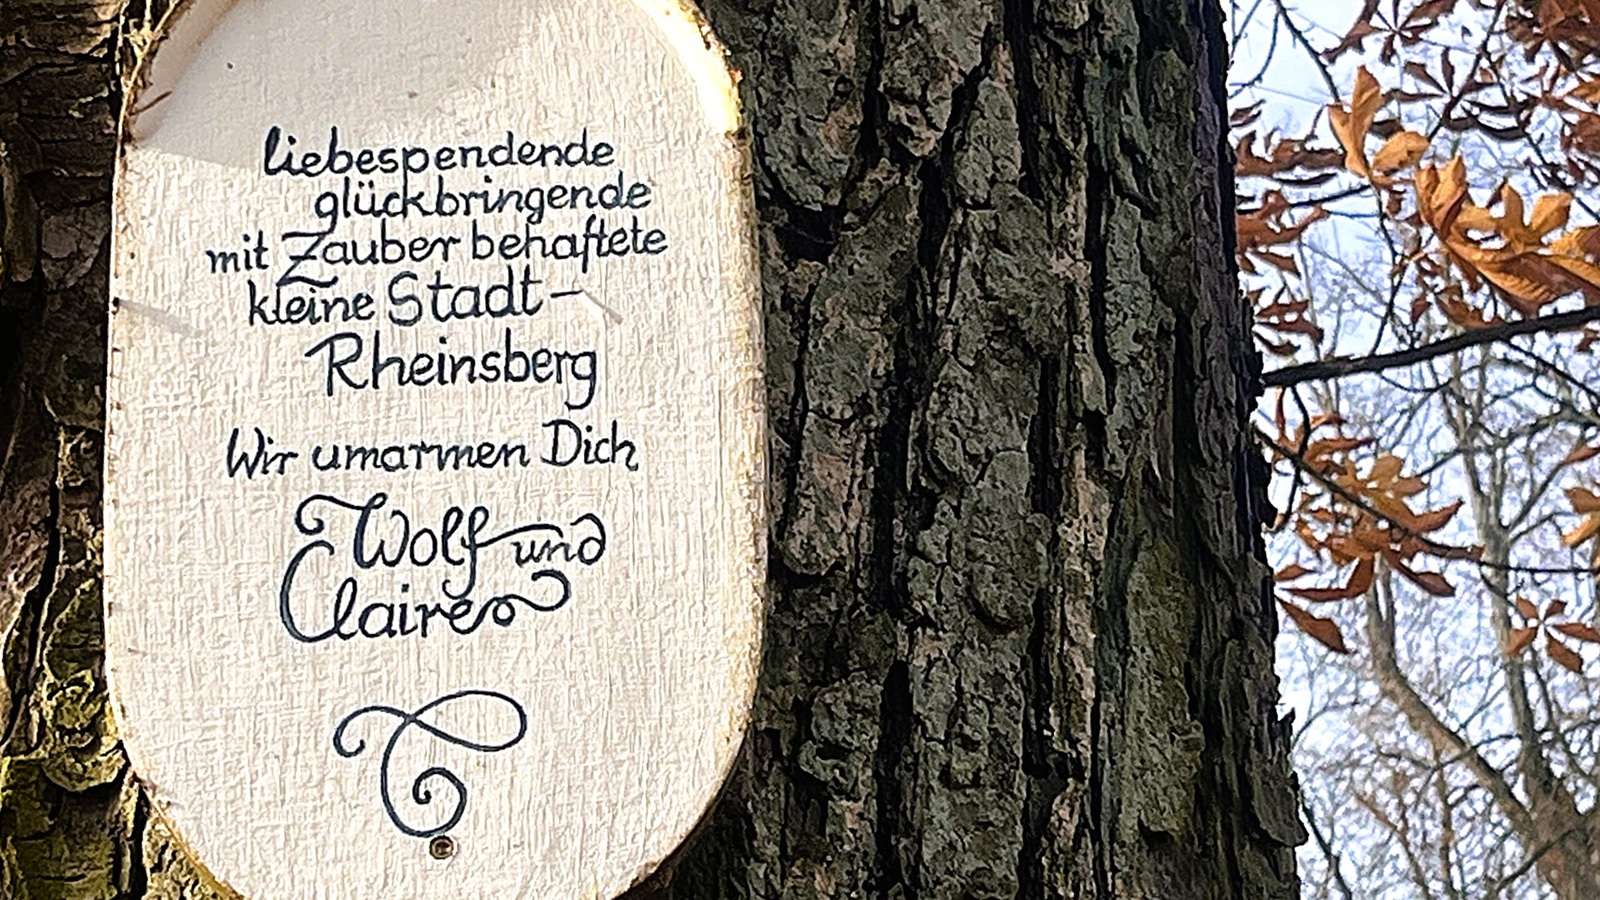 liebespendende
glückbringende
mit Zauber behaftete
kleine Stadt –
Rheinsberg
Wir umarmen Dich
Wolf und
Claire